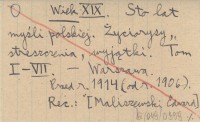 O Wiek XIX. Sto lat
myśli polskiej. Życiorysy,
streszczenia, wyjątki. Tom
I-VII. — Warszawa.
Przed r. 1914 (od r. 1906).
Rec.: [Maliszewski Edward]